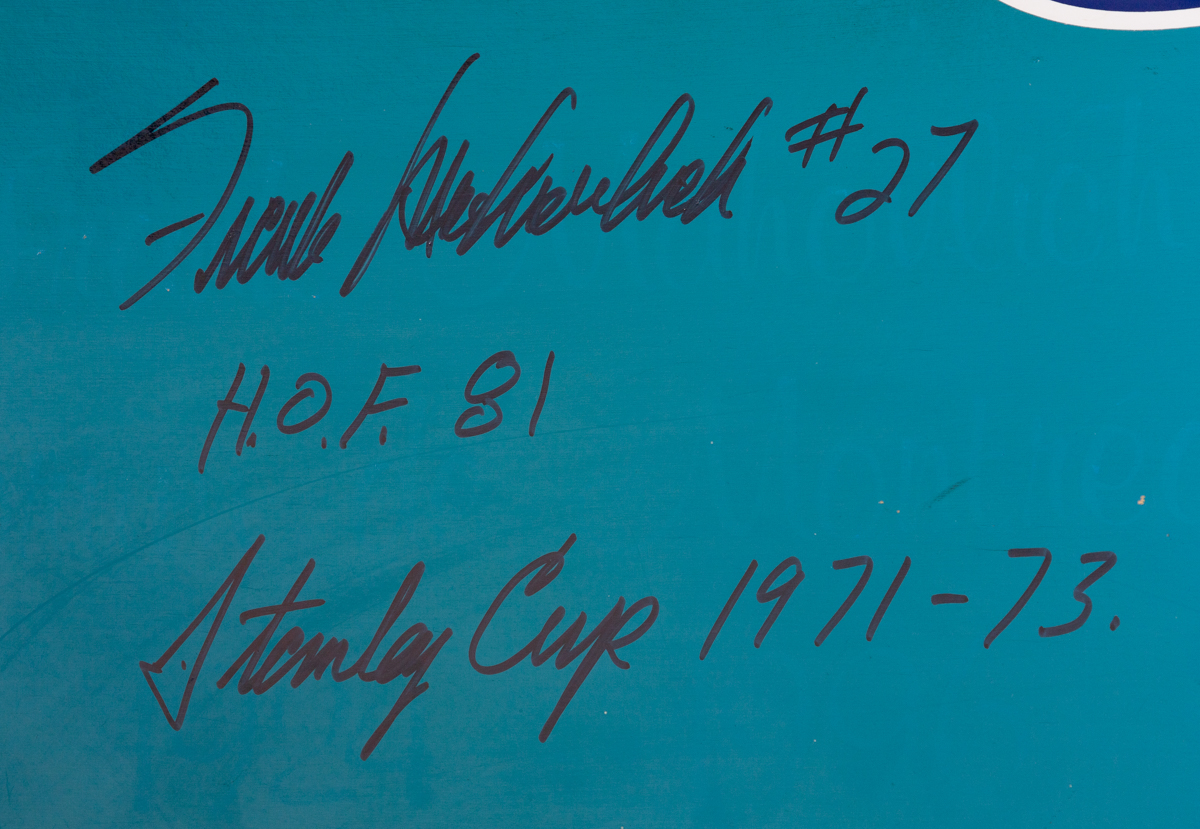 Frank Mahovlich #27
H.O.F. 81
Stanley Cup 1971-73.